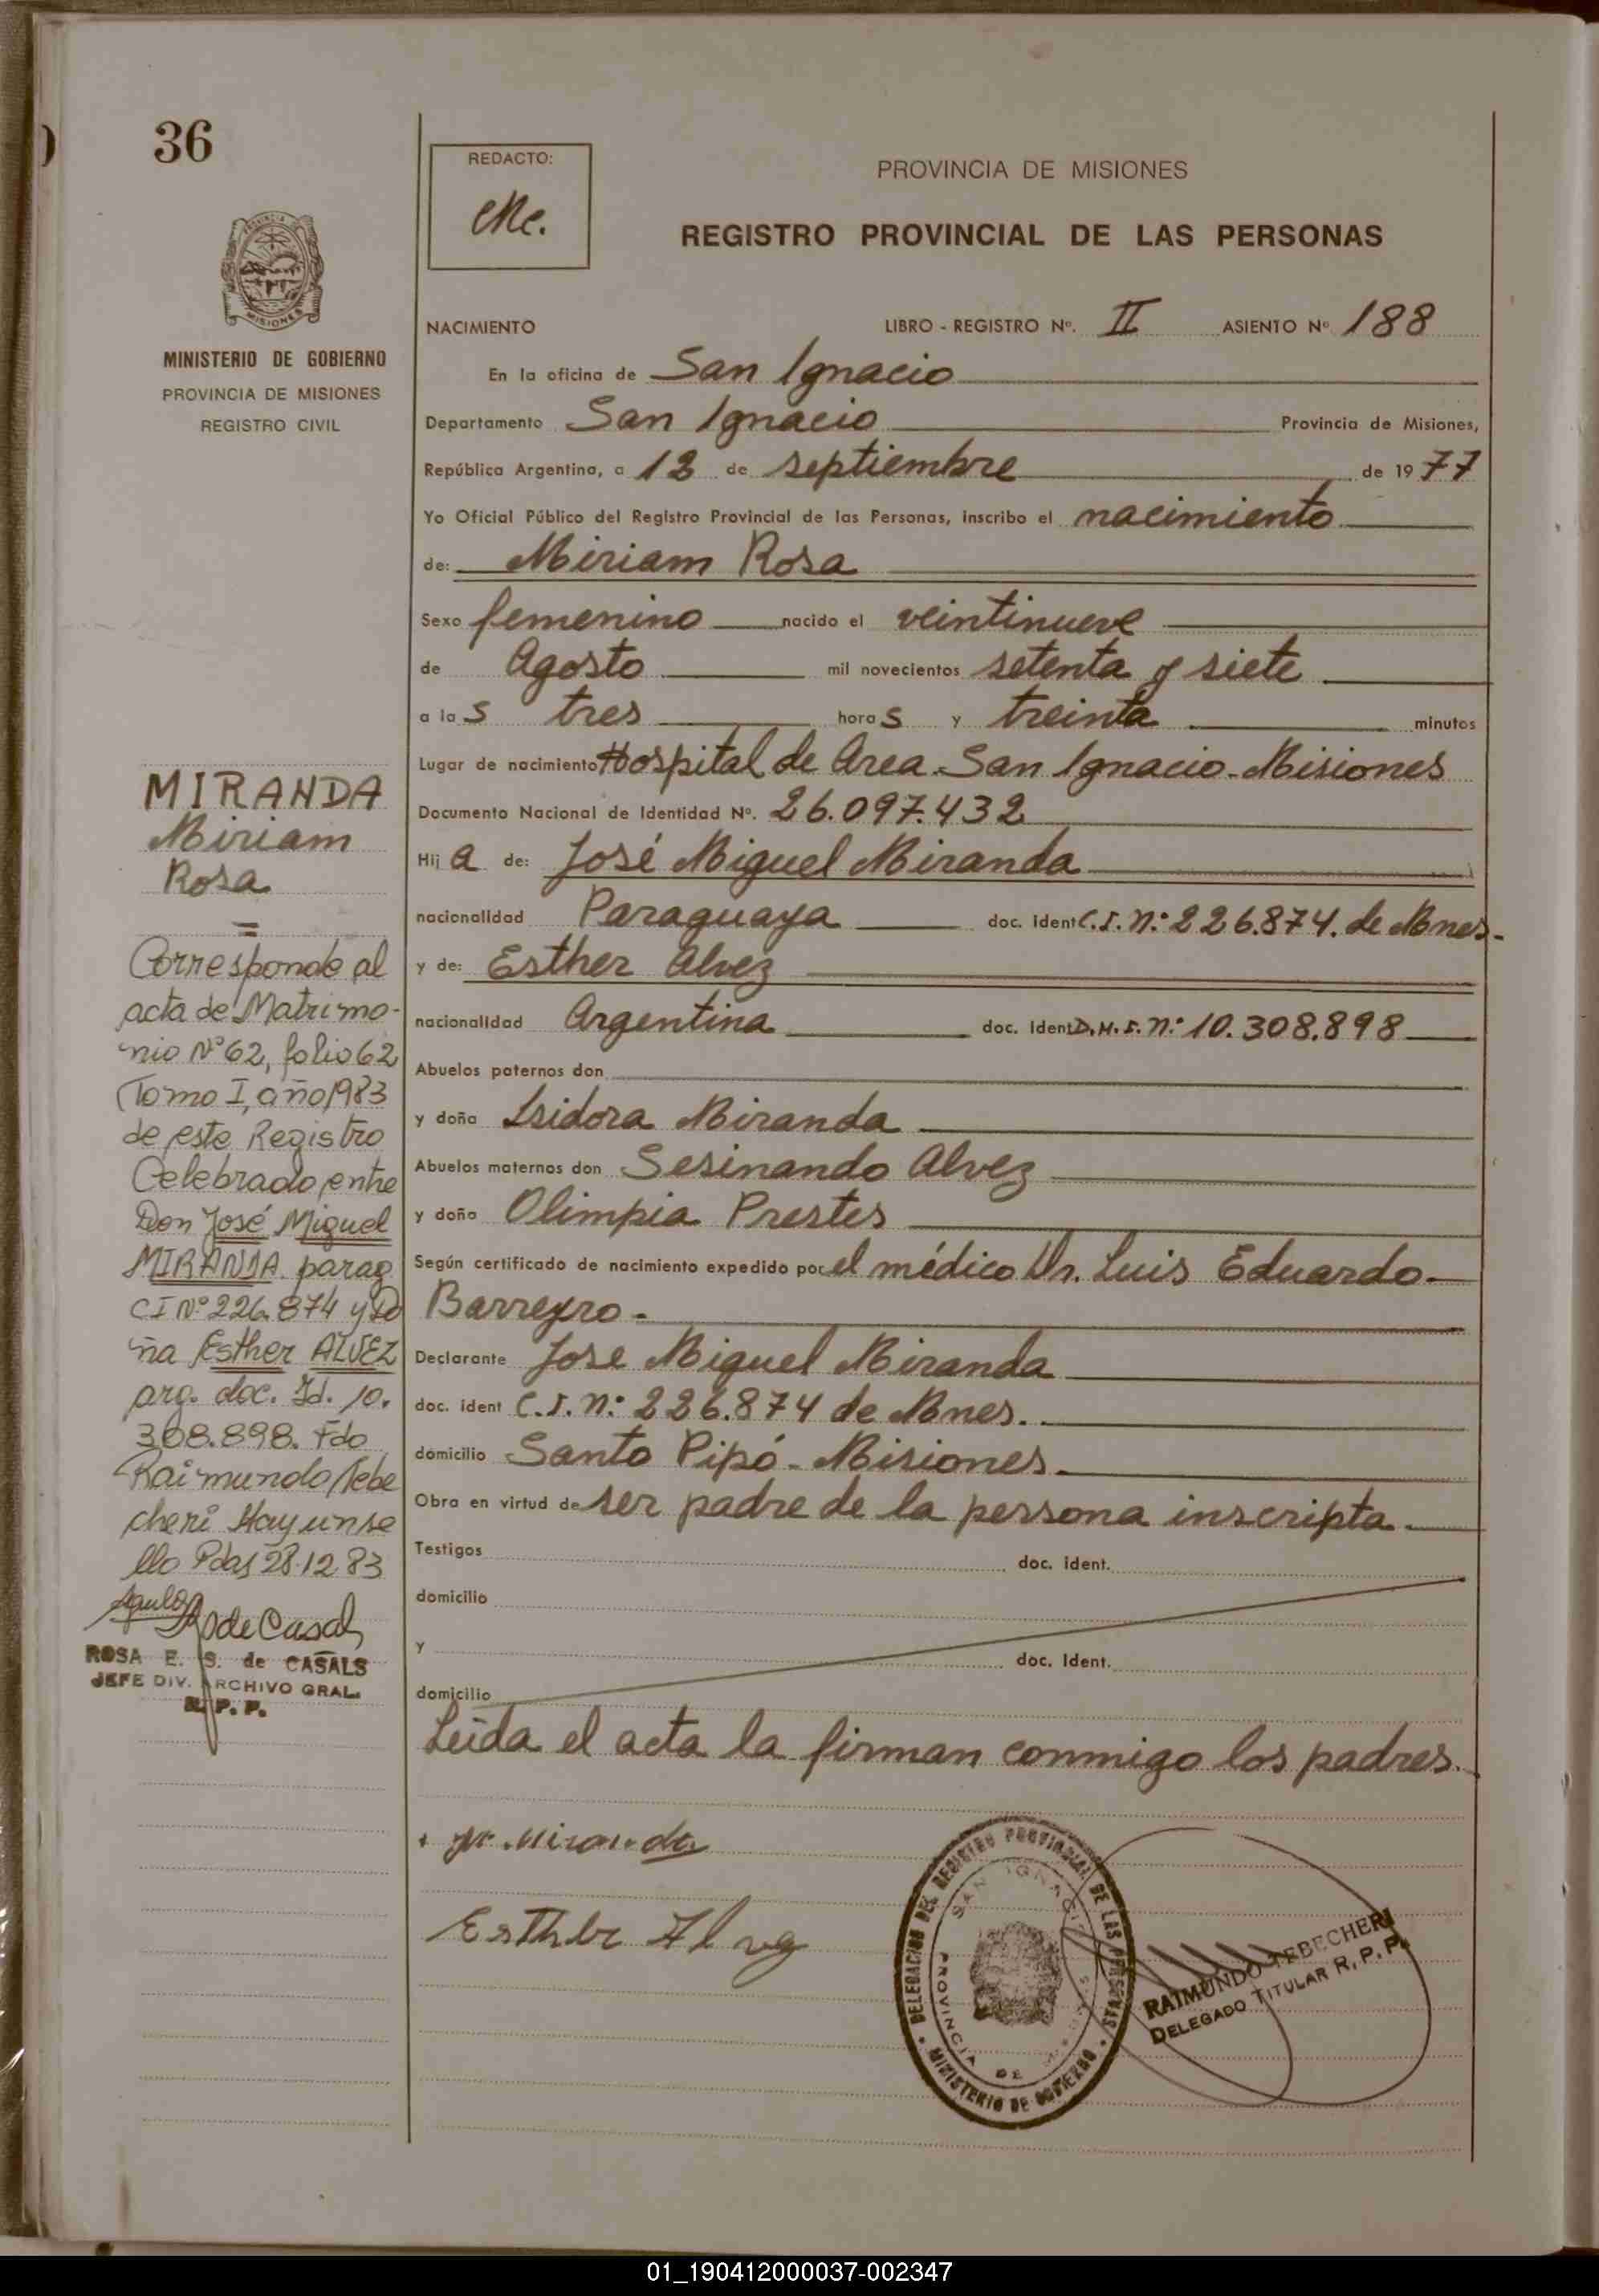 36
REDACTO:
Me.
PROVINCIA DE MISIONES
REGISTRO PROVINCIAL DE LAS PERSONAS
MISIONES
MINISTERIO DE GOBIERNO
PROVINCIA DE MISIONES
REGISTRO CIVIL
NACIMIENTO LIBRO - REGISTRO Nº. II ASIENTO Nº 188
En la oficina de San Ignacio
Departamento San Ignacio Provincia de Misiones,
República Argentina, a 12 de septiembre de 1977
Yo Oficial Público del Registro Provincial de las Personas, inscribo el nacimiento
de: Miriam Rosa
Sexo femenino nacido el veintinueve
de Agosto mil novecientos setenta y siete
a las tres horas y treinta minutos
Lugar de nacimiento Hospital de Area San Ignacio - Misiones
Documento Nacional de Identidad Nº. 26.097.432
Hija de: José Miguel Miranda
nacionalidad Paraguaya doc. ident C.I. Nº 226.874. de Mnes.
y de: Esther Alvez
nacionalidad Argentina doc. Ident D.N.I. Nº 10.308.898
Abuelos paternos don
y doña Isidora Miranda
Abuelos maternos don Sesinando Alvez
y doña Olimpia Prestes
Según certificado de nacimiento expedido por el médico Dr. Luis Eduardo
Barreyro -
Declarante Jose Miguel Miranda
doc. ident C.I. Nº 226.874 de Mnes.
domicilio Santo Pipó - Misiones
Obra en virtud de ser padre de la persona inscripta.
Testigos doc. ident.
domicilio
y doc. Ident.
domicilio
Leida el acta la firman conmigo los padres.
Miranda
Esther Alvez
DELEGACION DEL REGISTRO PROVINCIAL DE LAS PERSONAS
MINISTERIO DE GOBIERNO
SAN IGNACIO
PROVINCIA DE
RAIMUNDO TEBECHERI
DELEGADO TITULAR R. P. P.
MIRANDA
Miriam
Rosa
=
Corresponde al
acta de Matrimo-
nio Nº 62, folio 62
Tomo I, año 1983
de este Registro
Celebrado entre
Don José Miguel
MIRANDA parag
CI Nº 226.874 y Do
ña Esther ALVEZ
arg. doc. Id. 10.
308.898. Fdo
Raimundo Tebe
cheri Hay un se
llo Pdas 28.12.83
de Casals
ROSA E. S. de CASALS
JEFE DIV. ARCHIVO GRAL.
R. P. P.
01_190412000037-002347